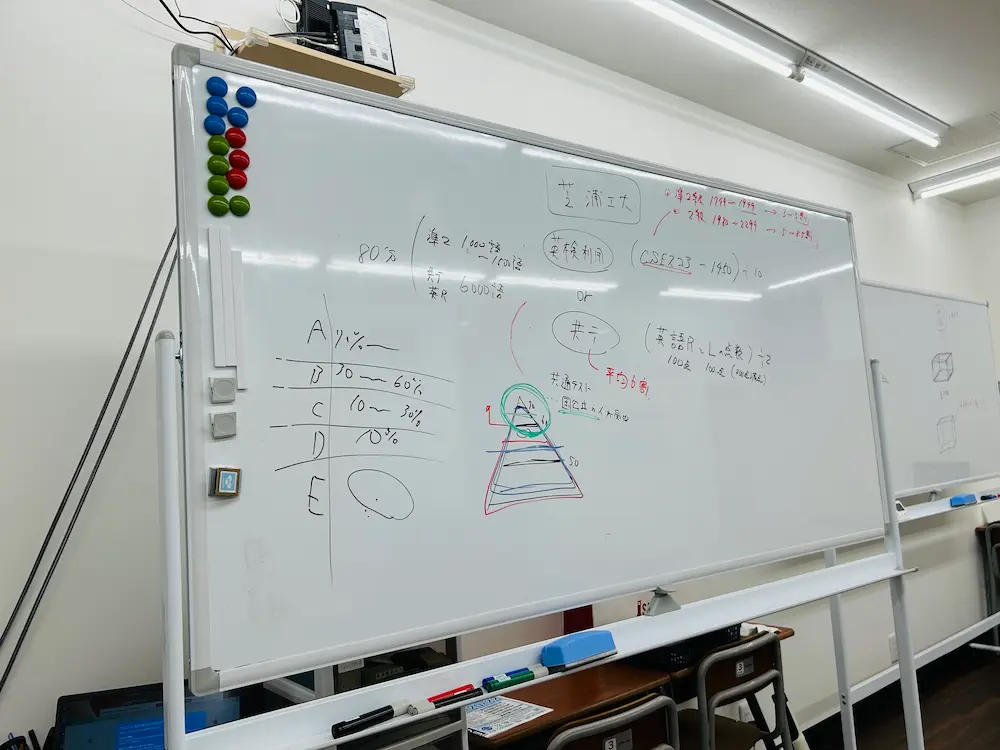 芝浦工大
準2級 1799〜1949
2級 1980〜2299
80分
準2 1000語
〜1500語
共テ
英R 6000語
英検利用
(CSEスコア - 1450) ÷ 10
or
共テ
(英語RとLの点数) ÷ 2
100点 100点
平均6割
共通テストは
国公立の人が
A 70%〜
B 30〜60%
C 10〜30%
D 10%
E
9
50
3
3